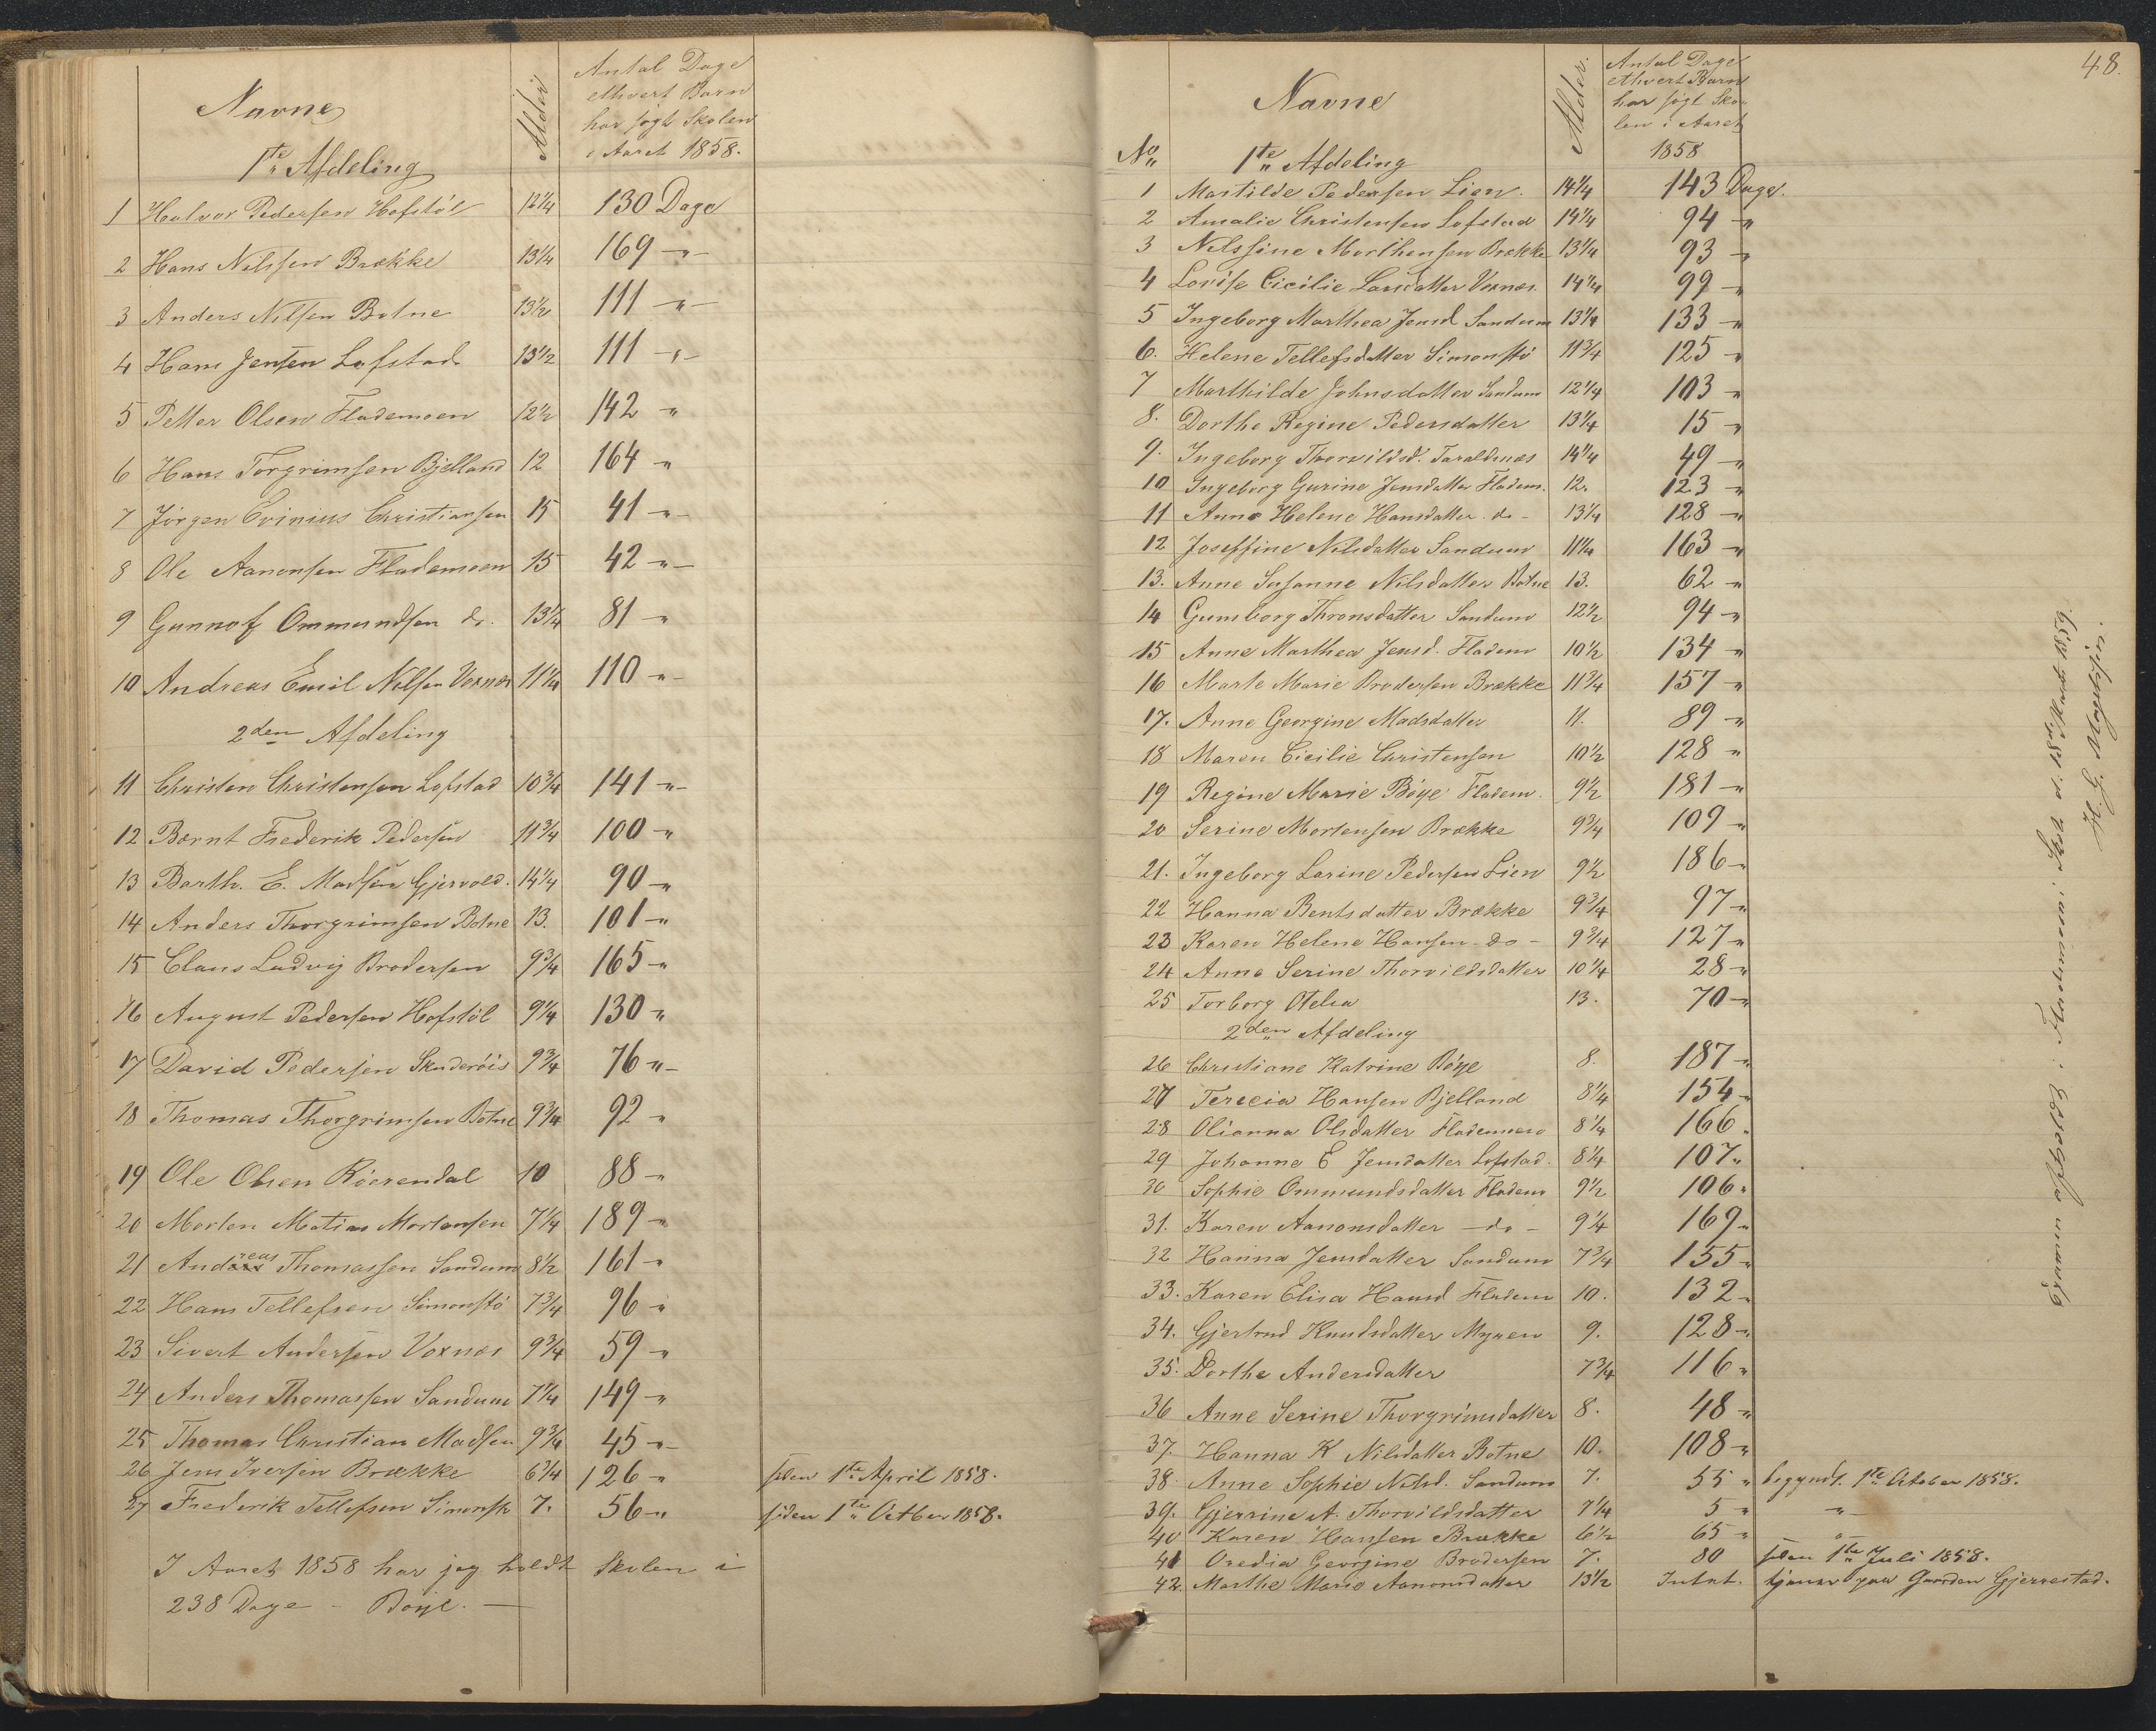 Navne
Alder
Antal Dage
ethvert Barn
har søgt Skolen
i Aaret 1858.
1te Afdeling
1 Halvor Pedersen Hofstøl 12 1/4 130 Dage
2 Hans Nilssen Brække 13 1/4 169 -"-
3 Anders Nilsen Botne 13 1/2 111 -"-
4 Hans Jensen Lofstad 13 1/2 111 -"-
5 Petter Olsen Flademoen 12 1/2 142 "
6 Hans Torgrimsen Bjelland 12 164 "
7 Jørgen Evinius Christiansen 15 41 -"-
8 Ole Aanonsen Flademoen 15 42 -"-
9 Gunnof Ommundsen do. 13 1/4 81 "
10 Andreas Emil Nilsen Voxnæs 11 1/4 110 -"-
2den Afdeling
11 Christen Christensen Lofstad 10 3/4 141 -"-
12 Bernt Frederik Pedersen 11 3/4 100 "
13 Barth. E. Madsen Gjervold. 14 1/4 90 "
14 Anders Thorgrimsen Botne 13. 101 "
15 Claus Ludvig Brodersen 9 3/4 165 "
16 August Pedersen Hofstøl 9 1/4 130 "
17 David Pedersen Skuderöis 9 3/4 76 "-
18 Thomas Thorgrimsen Botne 9 3/4 92 "
19 Ole Olsen Röerendal 10 88 "
20 Morten Matias Mortensen 7 1/4 189 "
21 Andreas Thomassen Sandum 8 1/2 161 "
22 Hans Tellefsen Simonstö 7 3/4 96 "
23 Sivert Andersen Voxnæs 9 3/4 59 "
24 Anders Thomassen Sandum 7 1/4 149 "
25 Thomas Christian Madsen 9 3/4 45 -"-
26 Jens Iversen Brække 6 1/4 126 " siden 1te April 1858.
27 Frederik Tellefsen Simonst. 7. 56 " siden 1te Octber 1858.
I Aaret 1858 har jeg holdt Skolen i
238 Dage - Böye. -
48.
Navne
Alder.
Antal Dage
ethvert Barn
har søgt Sko-
len i Aaret
1858
No 1te Afdeling
1 Martilde Pedersen Lien. 14 1/4 143 Dage.
2 Amalie Christensen Lofstad 14 1/4 94 "
3 Nilssine Morthensen Brække 13 1/4 93 "
4 Lovise Cicilie Larsdatter Voxnæs. 14 1/4 99 "
5 Ingeborg Marthea Jensd. Sandum 13 1/4 133 "
6. Helene Tellefsdatter Simonstö 11 3/4 125 "
7 Marthilde Johnsdatter Sandum 12 1/4 103 "
8. Dorthe Regine Pedersdatter 13 1/4 15 "
9. Ingeborg Thorvildsd. Taraldnæs 14 1/4 49 "
10 Ingeborg Gurine Jensdatter Fladem. 12. 123 "
11 Anne Helene Hansdatter do - 13 1/4 128 "
12 Joseffine Nilsdatter Sandum 11 1/4 163 "
13. Anne Susanne Nilsdatter Botne 13. 62 "
14 Gumborg Thronsdatter Sandum 12 1/2 94 "
15 Anne Marthea Jensd. Fladem 10 1/2 134 "
16 Marte Marie Brodersen Brække 11 3/4 157 "
17. Anne Georgine Madsdatter 11. 89 "
18 Maren Cicilie Christensen 10 1/2 128 "
19 Regine Marie Böye Fladem. 9 1/2 181 "
20 Serine Mortensen Brække 9 3/4 109 "
21. Ingeborg Larine Pedersen Lien 9 1/2 186 "
22 Hanna Bentsdatter Brække 9 3/4 97 "
23 Karen Helene Hansen - do - 9 3/4 127 "
24 Anne Serine Thorvildsdatter 10 1/4 28 "
25 Torborg Otelia 13. 70 "
2den Afdeling
26 Christiane Katrine Böye 8. 187 "
27 Terecia Hansen Bjelland 8 1/4 154 "
28 Olianna Olsdatter Flademoen 8 1/4 166 "
29 Johanne E Jensdatter Lofstad. 8 1/4 107 "
30 Sophie Ommundsdatter Fladem 9 1/2 106 "
31. Karen Aanonsdatter - do - 9 1/4 169 "
32 Hanna Jensdatter Sandum 7 3/4 155 "
33. Karen Elisa Hansd. Fladem 10. 132 "
34. Gjertrud Knudsdatter Myren 9. 128 "
35. Dorthe Andersdatter 7 3/4 116 "
36 Anne Serine Thorgrimsdatter 8. 48 "
37. Hanna K Nilsdatter Botne 10. 108 "
38. Anne Sophie Nilsd. Sandum 7. 55 " begyndt. 1te October 1858.
39. Gjerrine A. Thorvildsdatter 7 1/4 5 " -"-
40 Karen Hansen Brække 6 1/2 65 " "
41 Oredia Georgine Brodersen 7. 80 siden 1te Juli 1858.
42. Marthe Marie Aanonsdatter 13 1/2 Intet. tjener paa Gaarden Gjerrestad.
Examen afholdt i Flademoen Skole d. 18de Marts 1859.
H. G. Magelssen.